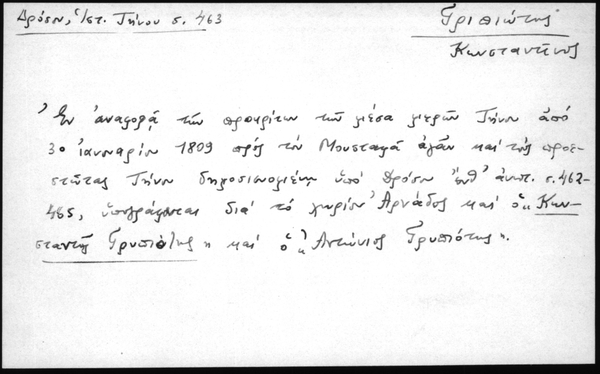 Δρόσου, Ἱστ. Τήνου σ. 463
Γριπιώτης
Κωνσταντῖνος
Ἐν ἀναφορᾷ τῶν προκρίτων τῶν μέσα μερῶν Τήνου ἀπό
30 Ἰανουαρίου 1809 πρός τόν Μουσταφᾶ ἀγᾶν καί τούς προε-
στῶτας Τήνου δημοσιευομένῃ ὑπό Δρόσου ἔνθ' ἀνωτ. σ. 462-
465, ὑπογράφονται διά τό χωρίον Ἀρνάδος καί ὁ "Κων-
σταντῆς Γρυπιότης" καί ὁ "Ἀντώνιος Γρυπιότης".